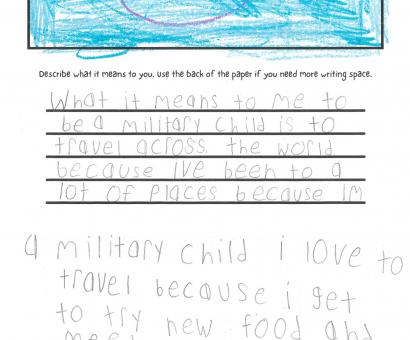 Describe what it means to you. Use the back of the paper if you need more writing space.
What it means to me to
be a military child is to
travel across. the world
because ive been to a
lot of places because im
a military child i love to
travel because i get
to try new food and
meet